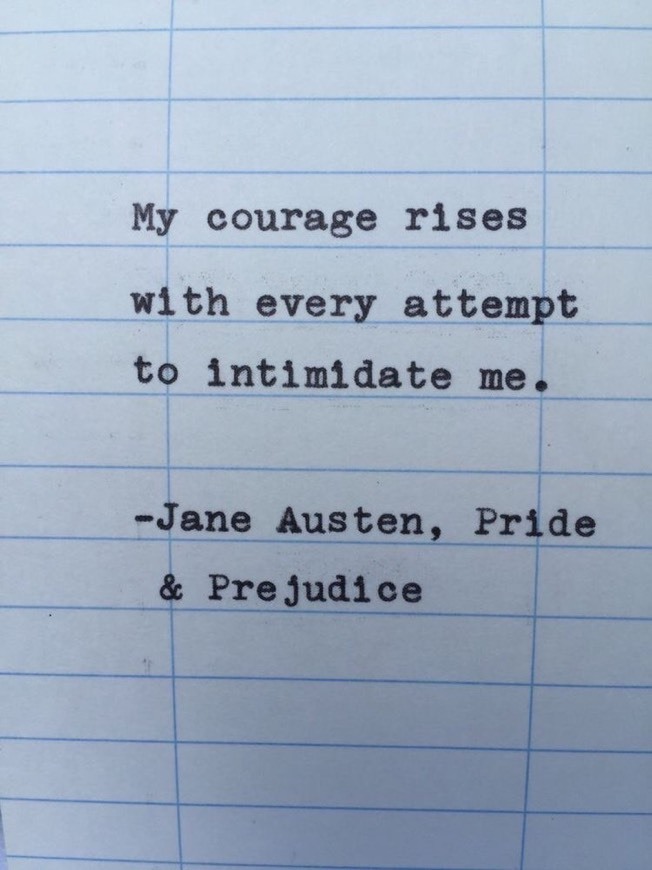 My courage rises
with every attempt
to intimidate me.
-Jane Austen, Pride
& Prejudice